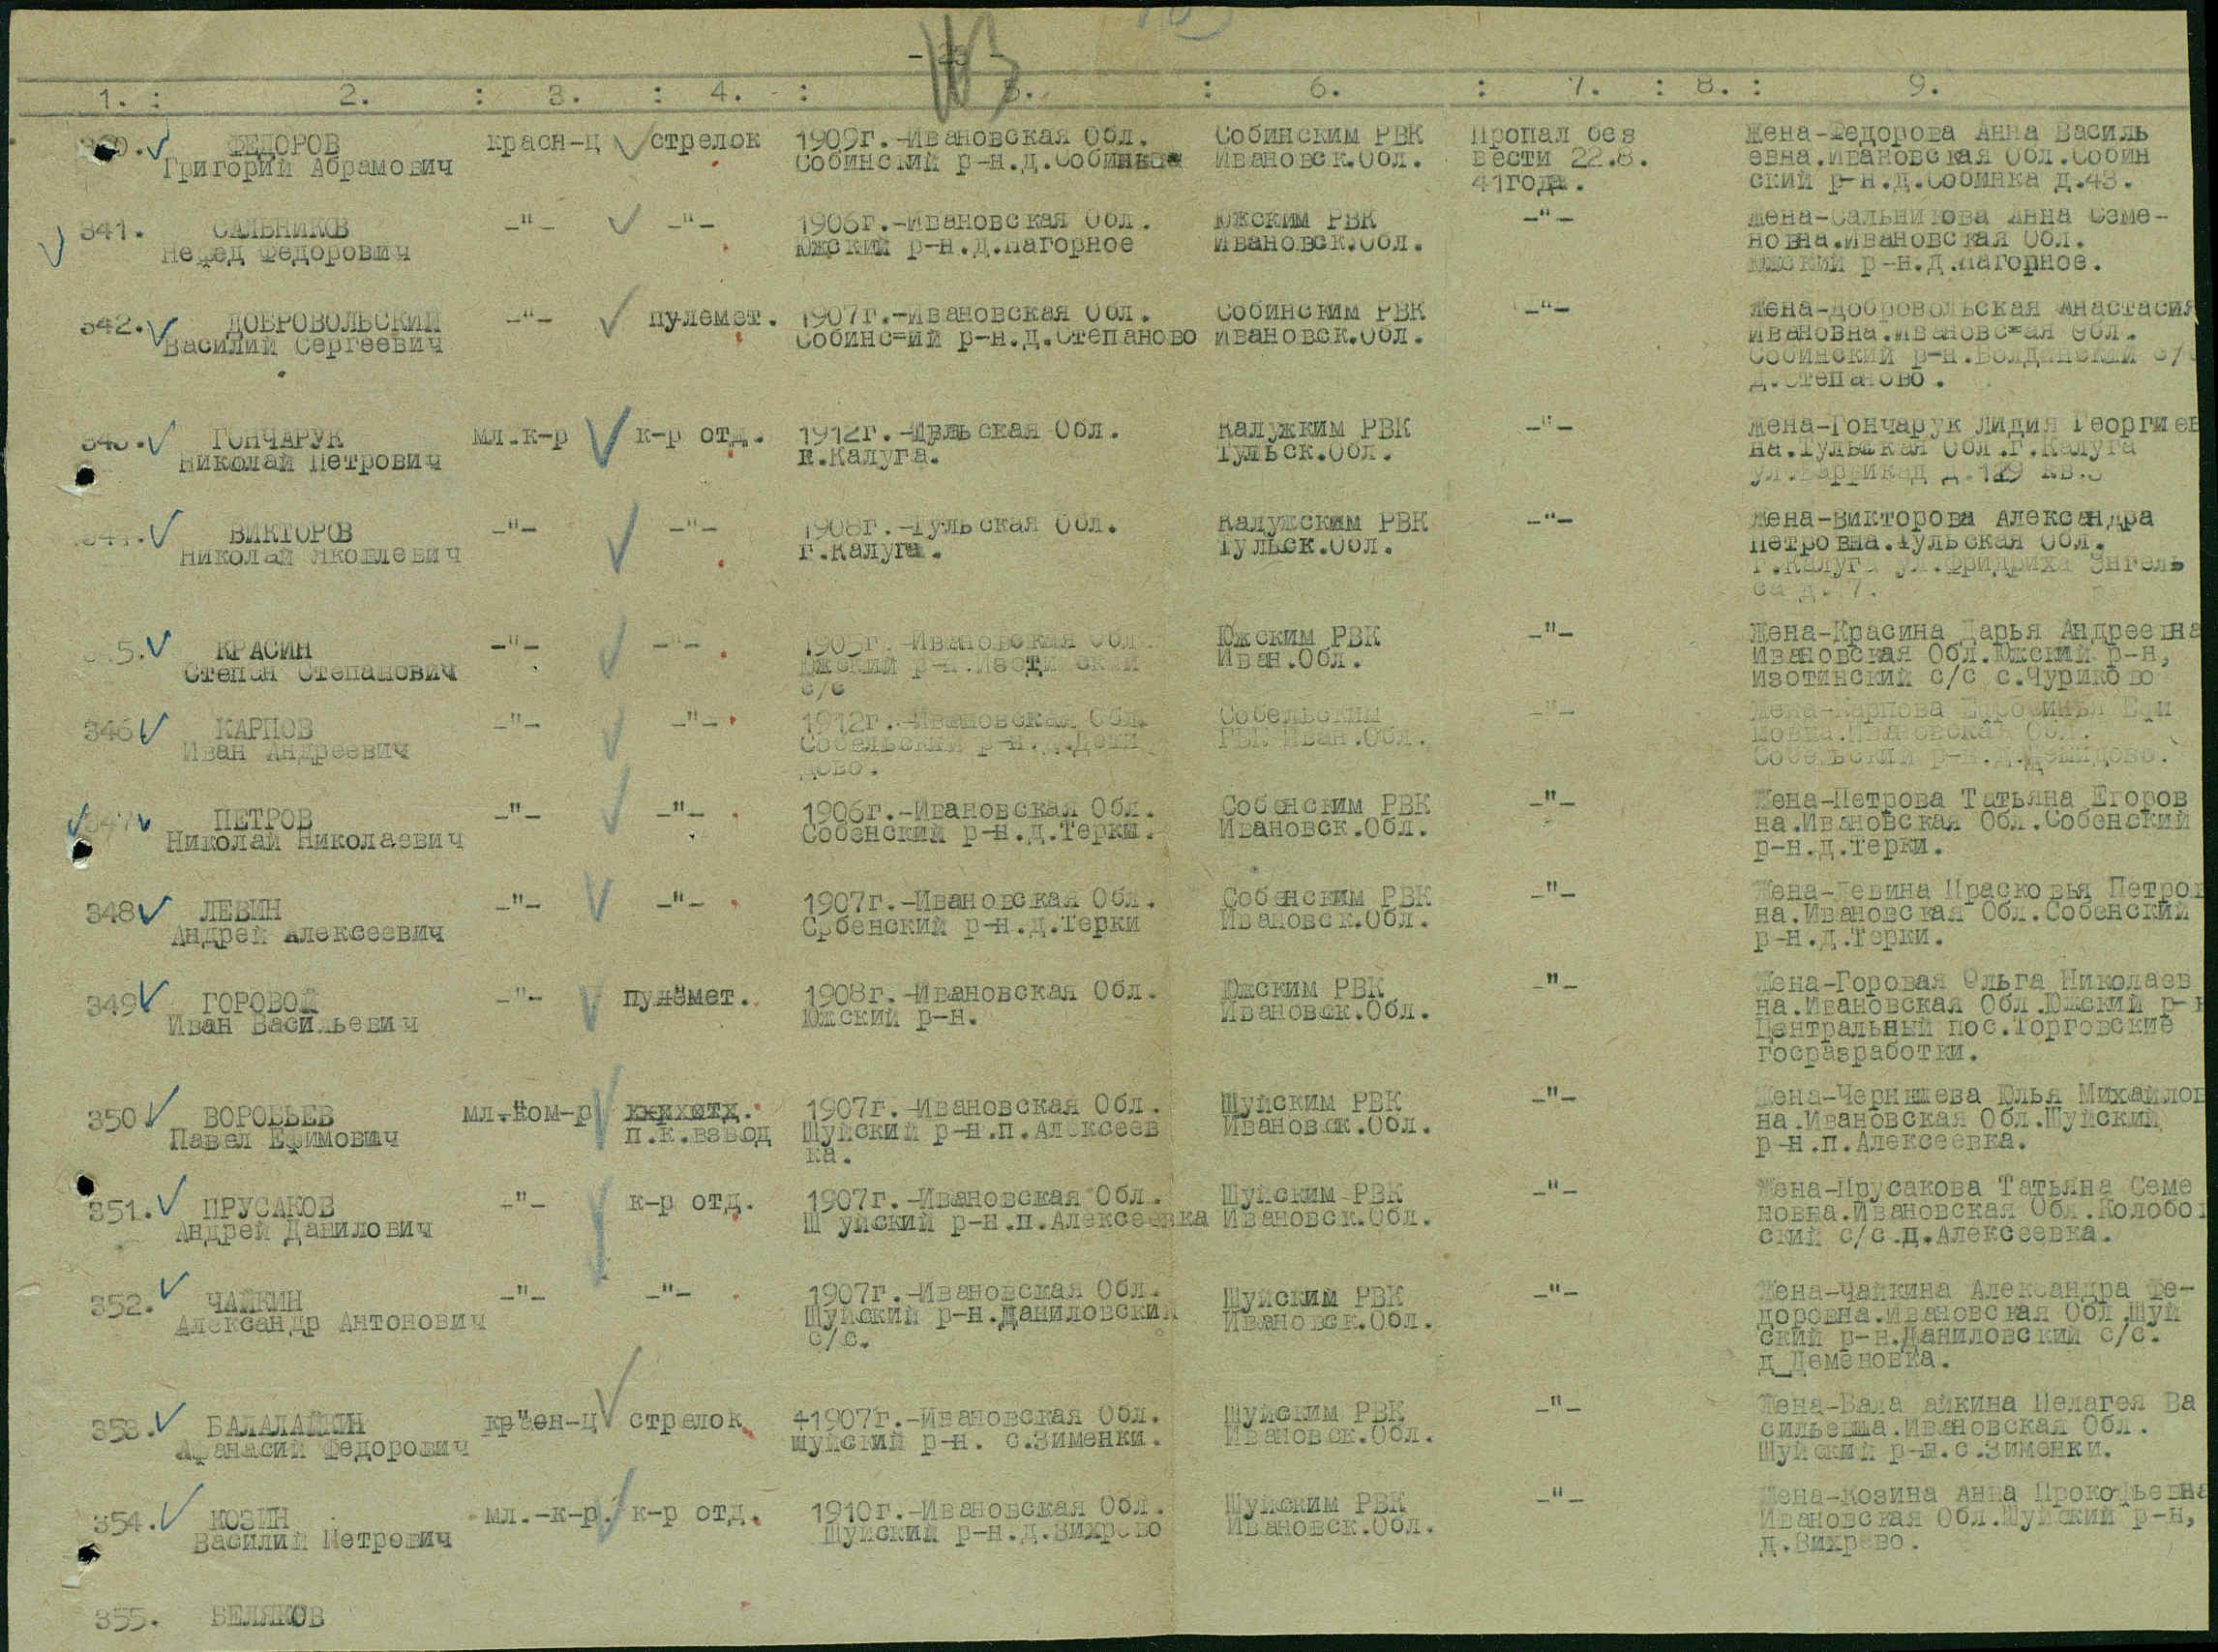 1. : 2. : 3. : 4. : 5. : 6. : 7. : 8. : 9.
ФЕДОРОВ красн-ц стрелок 1909г.-Ивановская Обл. Собинским РВК Пропал без Жена-Федорова Анна Василь
Григорий Абрамович Собинский р-н.д.Собинка Ивановск.Обл. вести 22.8. евна.Ивановская Обл.Собин
41года. ский р-н.д.Собинка д.43.
341. САЛЬНИКОВ -"- -"- 1906г.-Ивановская Обл. Южским РВК -"- Жена-Сальникова Анна Семе-
Нефед Федорович Южский р-н.д.Нагорное Ивановск.Обл. новна.Ивановская Обл.
Южский р-н.д.Нагорное.
342. ДОБРОВОЛЬСКИЙ -"- пулемет. 1907г.-Ивановская Обл. Собинским РВК -"- Жена-Добровольская Анастасия
Василий Сергеевич Собинс=ий р-н.д.Степаново Ивановск.Обл. Ивановна.Ивановс=ая Обл.
Собинский р-н.Болдинский с/с
д.Степаново.
343. ГОНЧАРУК мл.к-р к-р отд. 1912г.- Обл. Калужким РВК -"- Жена-Гончарук Лидия Георгиев
Николай Петрович г.Калуга. Тульск.Обл. на.Тульская Обл.г.Калуга
ул.Баррикад д.129 кв.
344. ВИКТОРОВ -"- -"- 1908г.-Тульская Обл. Калужским РВК -"- Жена-Викторова Александра
Николай Яковлевич г.Калуга. Тульск.Обл. Петровна.Тульская Обл.
г.Калуга ул.Фридриха Энгель
са д. 7.
345. КРАСИН -"- -"- 1905г.-Ивановская Обл. Южским РВК -"- Жена-Красина Дарья Андреевна
Степан Степанович Южский р-н.Изотинский Иван.Обл. Ивановская Обл.Южский р-н,
с/с Изотинский с/с с.Чуриково
346. КАРПОВ -"- -"- 1912г.-Ивановская Обл. Собельским -"- Жена-Карпова Ефросинья Ефи
Иван Андреевич Собельский р-н.д.Деми РВК Иван.Обл. мовна.Ивановская Обл.
дово. Собельский р-н.д.Демидово.
347. ПЕТРОВ -"- -"- 1906г.-Ивановская Обл. Собенским РВК -"- Жена-Петрова Татьяна Егоров
Николай Николаевич Собенский р-н.д.Терки. Ивановск.Обл. на.Ивановская Обл.Собенский
р-н.д.Терки.
348. ЛЕВИН -"- -"- 1907г.-Ивановская Обл. Собенским РВК -"- Жена-Левина Прасковья Петров
Андрей Алексеевич Србенский р-н.д.Терки Ивановск.Обл. на.Ивановская Обл.Собенский
р-н.д.Терки.
349. ГОРОВОЙ -"- пулёмет. 1908г.-Ивановская Обл. Южским РВК -"- Жена-Горовая Ольга Николаев
Иван Васильевич Южский р-н. Ивановск.Обл. на.Ивановская Обл.Южский р-н
Центральный пос.Торговские
госразработки.
350. ВОРОБЬЕВ мл.ком-р 1907г.-Ивановская Обл. Шуйским РВК -"- Жена-Чернышева Юлья Михайлов
Павел Ефимович п.к.взвод Шуйский р-н.п.Алексеев Ивановск.Обл. на.Ивановская Обл.Шуйский
ка. р-н.п.Алексеевка.
351. ПРУСАКОВ -"- к-р отд. 1907г.-Ивановская Обл. Шуйским РВК -"- Жена-Прусакова Татьяна Семе
Андрей Данилович Ш уйский р-н.п.Алексеевка Ивановск.Обл. новна.Ивановская Обл.Колобов
ский с/с.д.Алексеевка.
352. ЧАЙКИН -"- -"- 1907г.-Ивановская Обл. Шуйским РВК -"- Жена-Чайкина Александра Фе-
Александр Антонович Шуйский р-н.Даниловский Ивановск.Обл. доровна.Ивановская Обл.Шуй
с/с. ский р-н.Даниловский с/с.
д_Деменовка.
353. БАЛАЛАЙКИН красн-ц стрелок 1907г.-Ивановская Обл. Шуйским РВК -"- Жена-Бала айкина Пелагея Ва
Афанасий Федорович Шуйский р-н. с.Зименки. Ивановск.Обл. сильевна.Ивановская Обл.
Шуйский р-н.с.Зименки.
354. КОЗИН мл.-к-р. к-р отд. 1910г.-Ивановская Обл. Шуйским РВК -"- Жена-Козина Анна Прокофьевна
Василий Петрович Шуйский р-н.д.Вихрево Ивановск.Обл. Ивановская Обл.Шуйский р-н,
д.Вихрево.
355. БЕЛЯКОВ